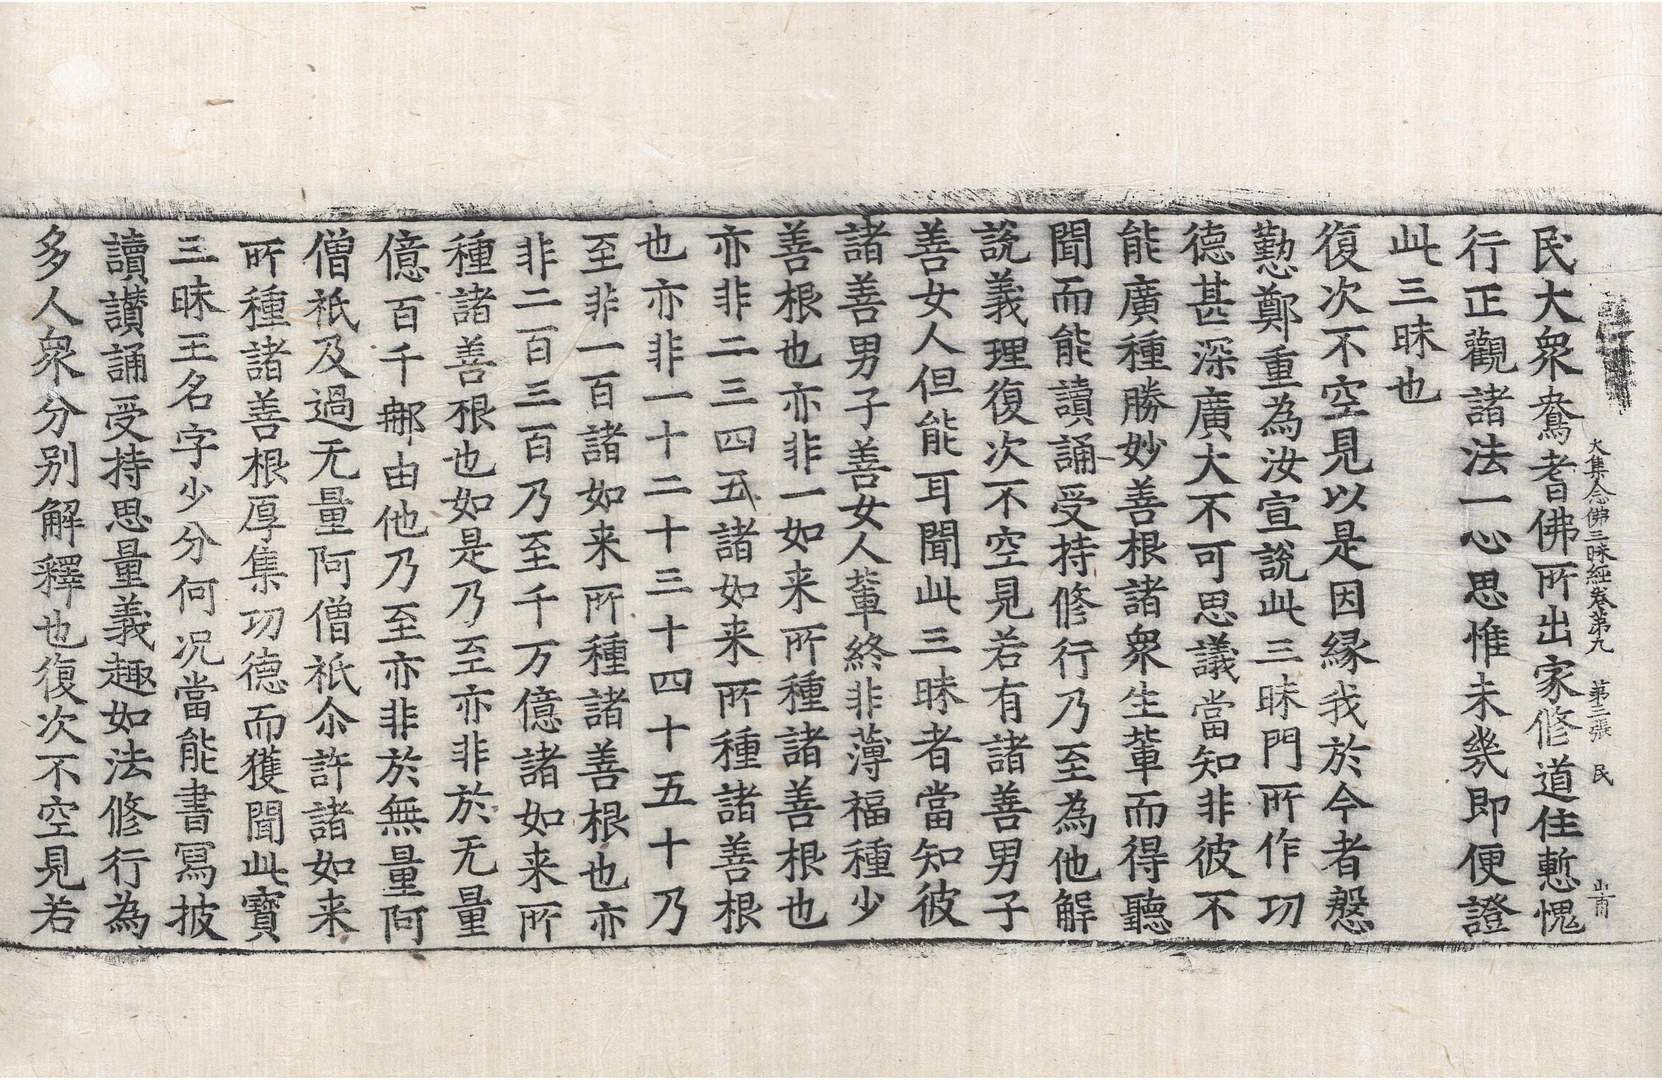 大集念佛三昧經卷第九 第三張 民
民大衆鴦耆佛所出家修道住慙愧
行正觀諸法一心思惟未幾即便證
此三昧也
復次不空見以是因縁我於今者慇
懃鄭重為汝宣說此三昧門所作功
德甚深廣大不可思議當知非彼不
能廣種勝妙善根諸衆生軰而得聽
聞而能讀誦受持修行乃至為他解
說義理復次不空見若有諸善男子
善女人但能耳聞此三昧者當知彼
諸善男子善女人軰終非薄福種少
善根也亦非一如来所種諸善根也
亦非二三四五諸如来所種諸善根
也亦非一十二十三十四十五十乃
至非一百諸如来所種諸善根也亦
非二百三百乃至千万億諸如来所
種諸善根也如是乃至亦非於无量
億百千那由他乃至亦非於無量阿
僧祇及過无量阿僧祇尒許諸如来
所種諸善根厚集功德而獲聞此寶
三昧王名字少分何况當能書寫披
讀讃誦受持思量義趣如法修行為
多人衆分别解釋也復次不空見若